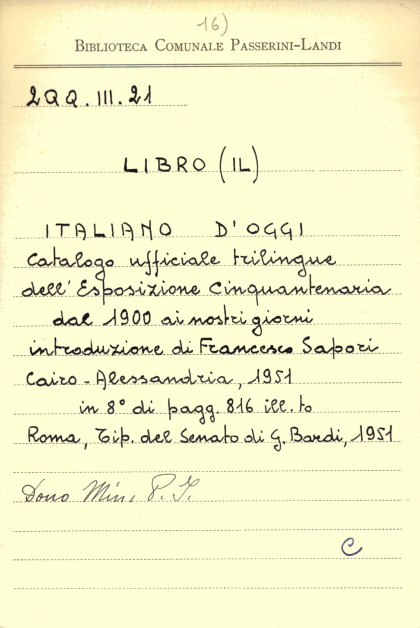 16)
BIBLIOTECA COMUNALE PASSERINI-LANDI
2QQ.III.21
LIBRO (IL)
ITALIANO D'OGGI
Catalogo ufficiale trilingue
dell'Esposizione Cinquantenaria
dal 1900 ai nostri giorni
introduzione di Francesco Sapori
Cairo-Alessandria, 1951
in 8° di pagg. 816 ill.to
Roma, Tip. del Senato di G. Bardi, 1951
Dono Min. P. I.
C